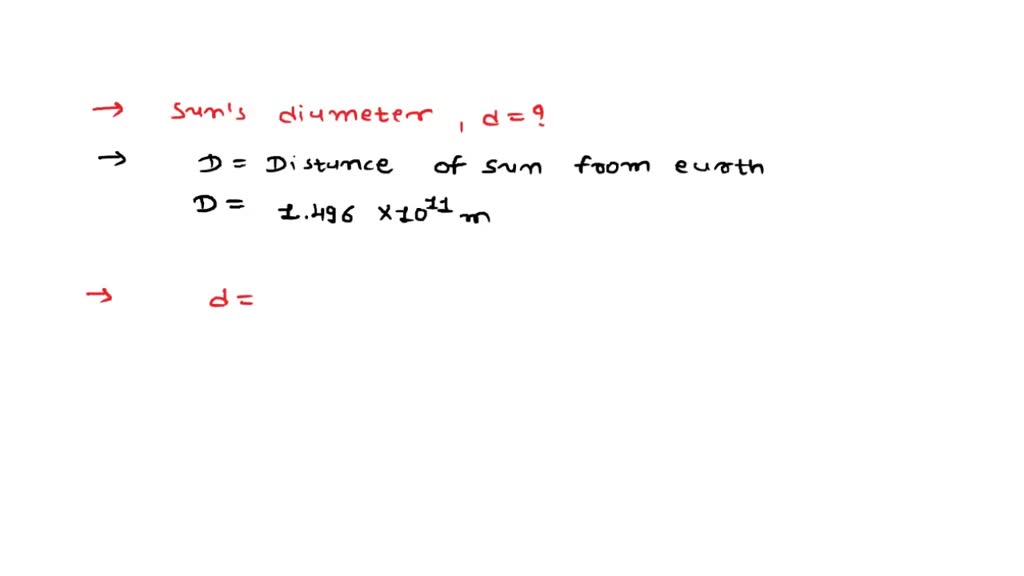 → Sun's diameter, d = ?
→ D = Distance of sun from earth
D = 1.496 × 10¹¹ m
→ d =